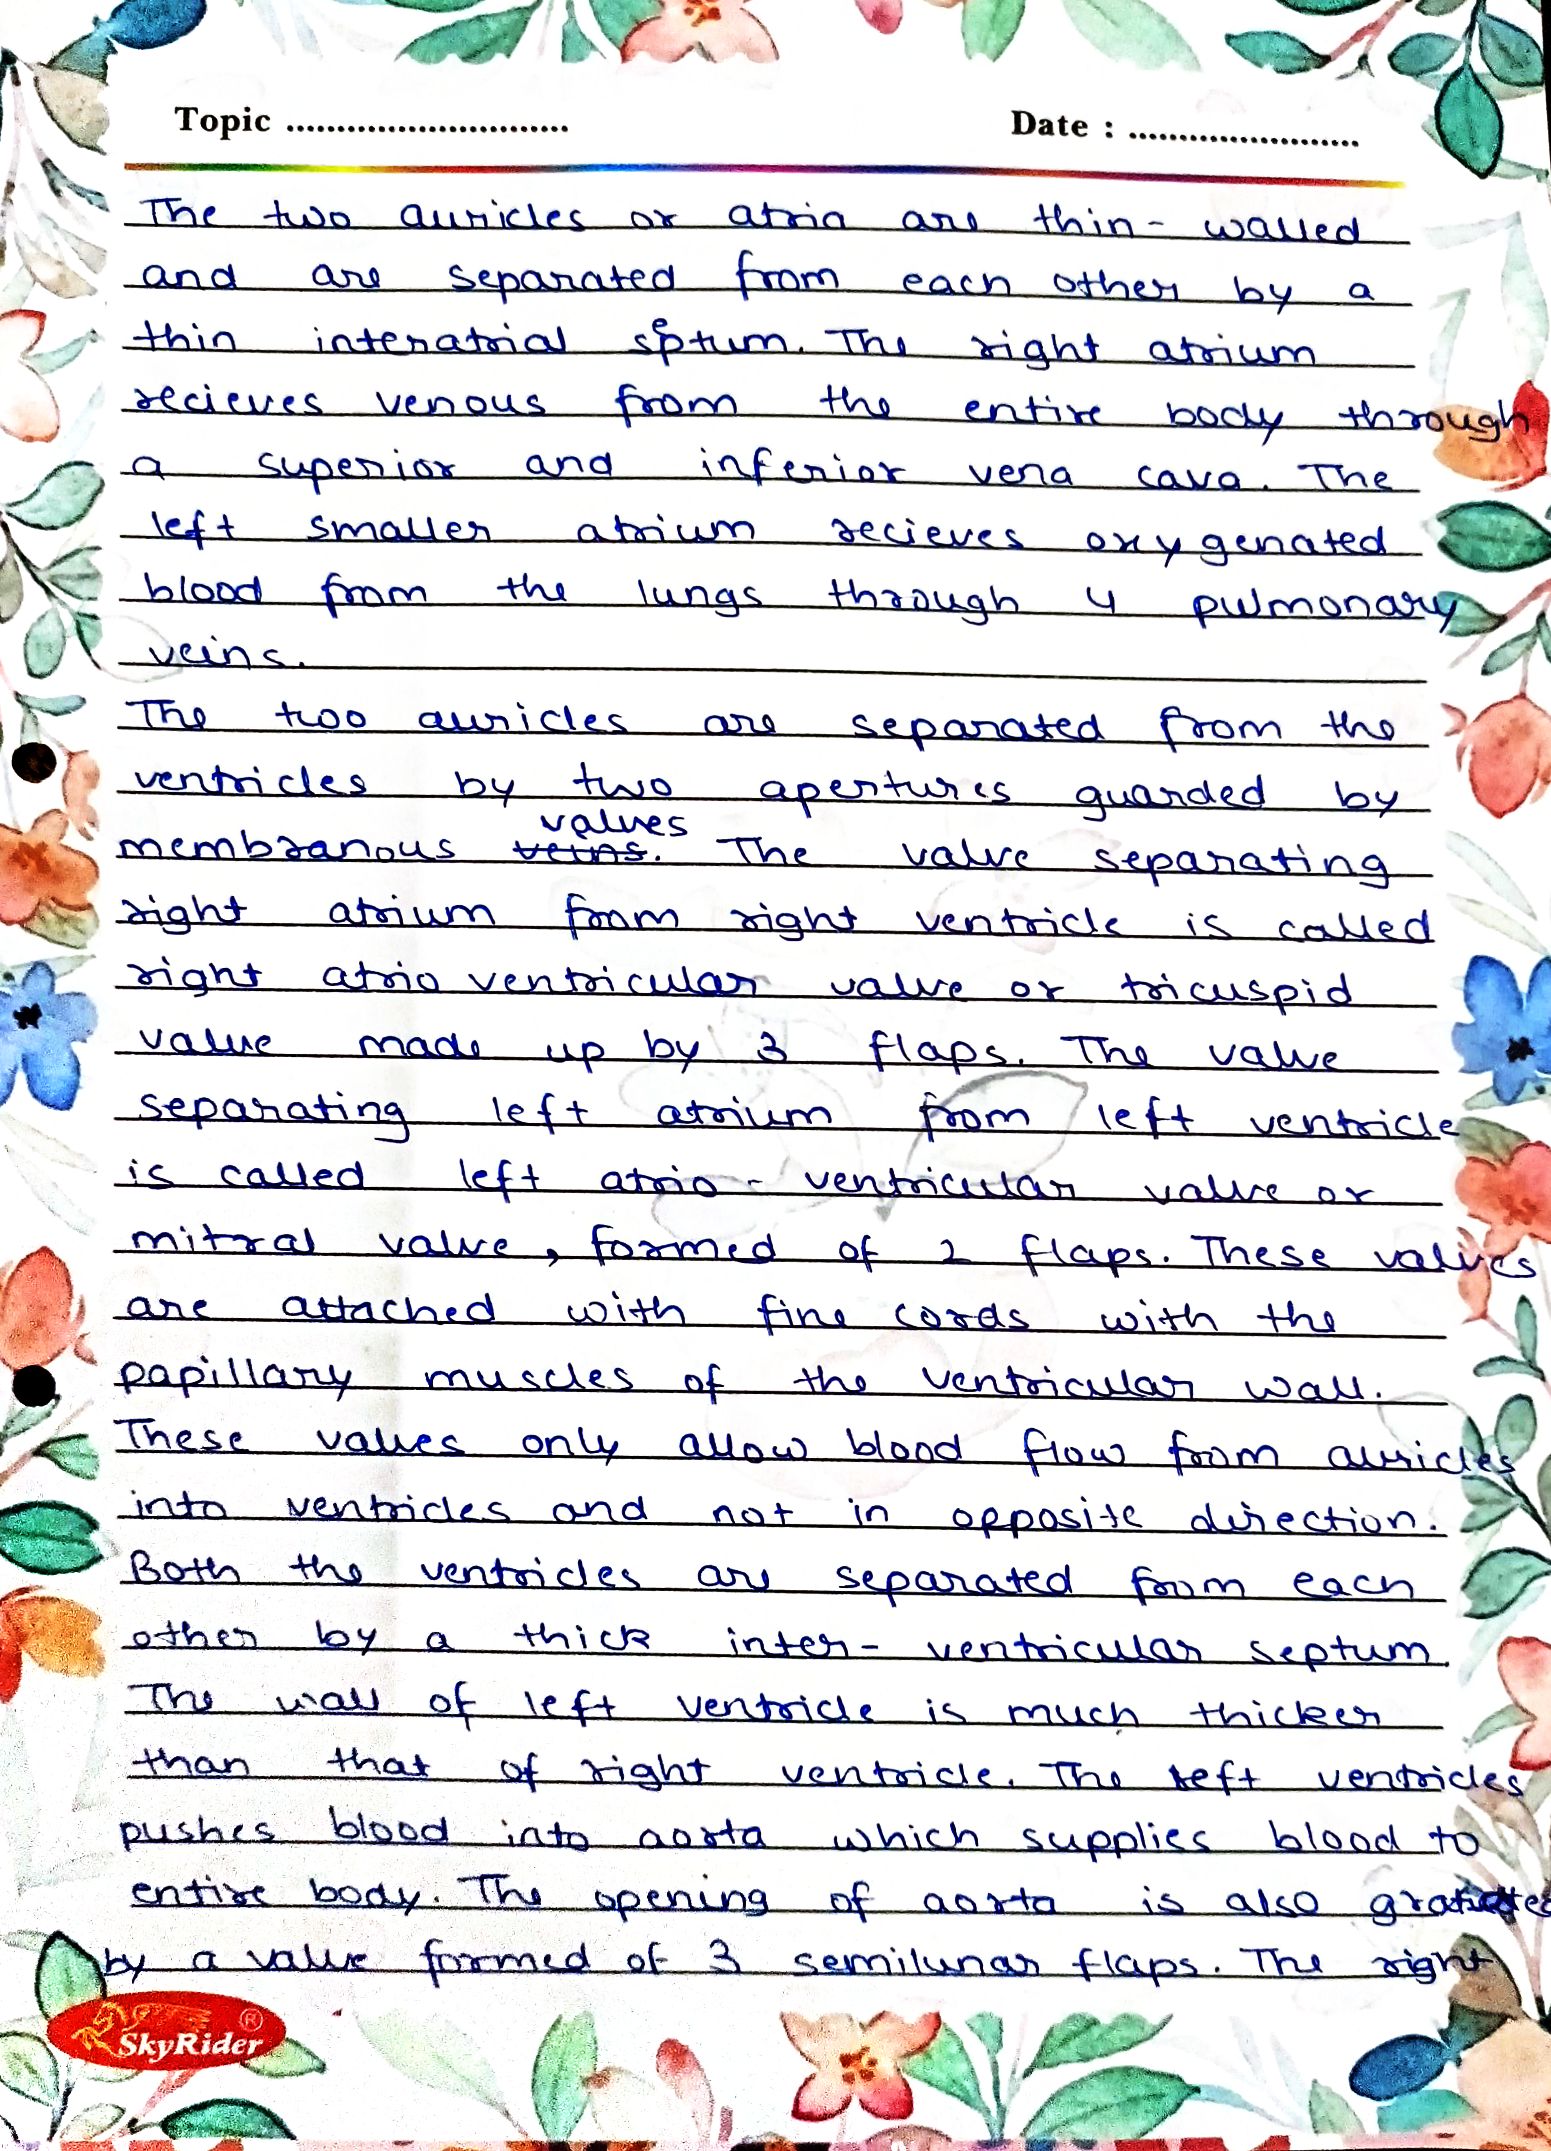 Topic ............................ Date : .......................
The two auricles or atria are thin - walled
and are separated from each other by a
thin interatrial septum. The right atrium
recieves venous from the entire body through
a superior and inferior vena cava. The
left smaller atrium recieves oxygenated
blood from the lungs through 4 pulmonary
veins.
The two auricles are separated from the
ventricles by two apertures guarded by
valves
membranous veins. The valve separating
right atrium from right ventricle is called
right atrio ventricular valve or tricuspid
valve made up by 3 flaps. The valve
separating left atrium from left ventricle
is called left atrio - ventricular valve or
mitral valve, formed of 2 flaps. These valves
are attached with fine cords with the
papillary muscles of the ventricular wall.
These valves only allow blood flow from auricles
into ventricles and not in opposite direction.
Both the ventricles are separated from each
other by a thick inter - ventricular septum.
The wall of left ventricle is much thicker
than that of right ventricle. The left ventricles
pushes blood into aorta which supplies blood to
entire body. The opening of aorta is also
by a valve formed of 3 semilunar flaps. The right
SkyRider ®